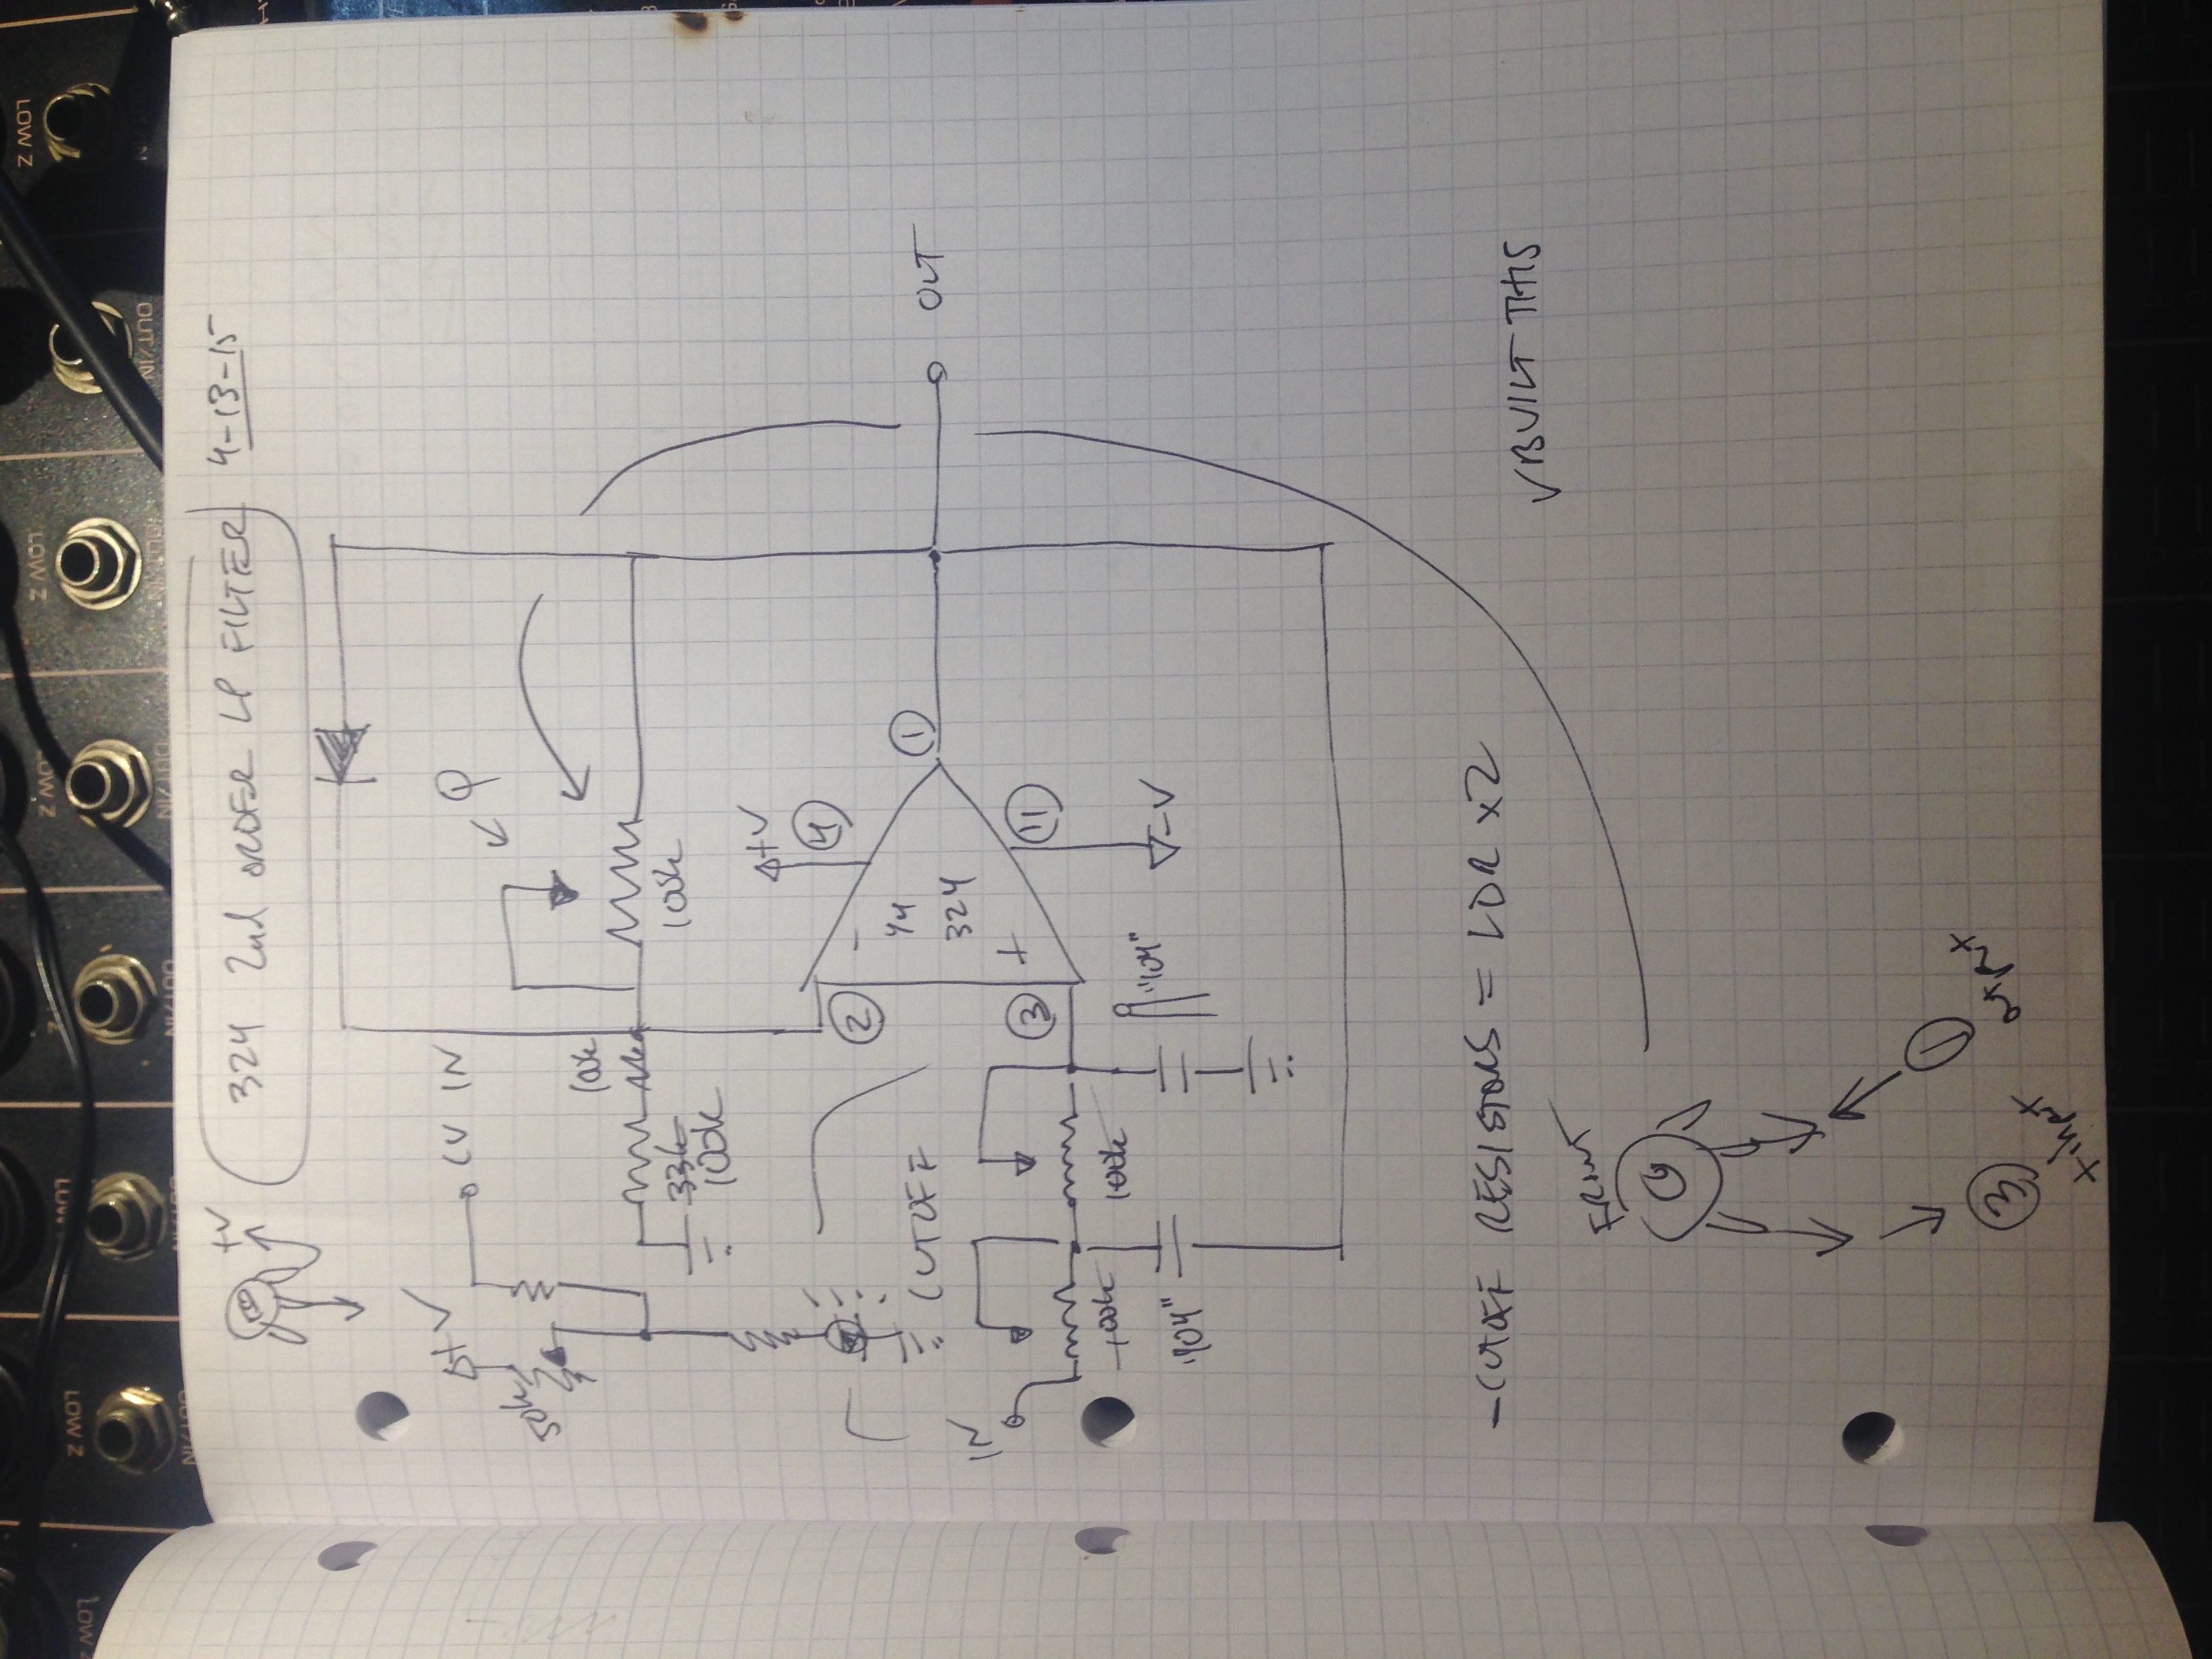 LOW Z
LOW Z
LOW Z
LOW Z
LOW Z
LOW Z
LOW Z
OUT/IN
OUT/IN
OUT/IN
OUT/IN
OUT/IN
OUT/IN
324 2nd ORDER LP FILTER 4-13-15
+V
+V
CV IN
Q
50k
33k
100k
100k
+V
4
2
-
1/4
324
+
1
OUT
CUTOFF
IN
3
11
100k
100k
"104"
"104"
-V
-CUTOFF RESISTORS = LDR x2
✓BUILT THIS
FRONT
1
output
3
+input